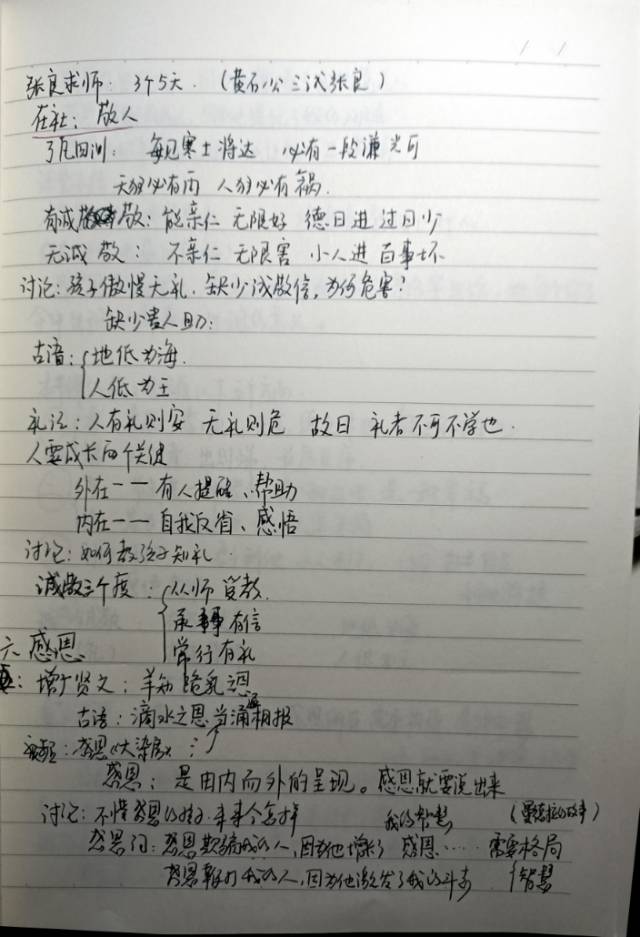 张良求师: 3个5天. (黄石公三试张良)
在社: 敬人
了凡四训: 每见寒士将达 必有一段谦光可
天狂必有雨 人狂必有祸.
有诚敬: 能亲仁 无限好 德日进 过日少
无诚敬: 不亲仁 无限害 小人进 百事坏
讨论: 孩子傲慢无礼. 缺少诚敬信, 为何危害?
缺少贵人助:
古语: 地低为海.
人低为王
礼记: 人有礼则安 无礼则危 故曰 礼者不可不学也.
人要成长两个关键
外在一一有人提醒、帮助
内在一一自我反省、感悟
讨论: 如何教孩子知礼.
诚敬三个度: 从师受教.
承事有信
常行有礼
六 感恩
增广贤文: 羊知跪乳之恩
古语: 滴水之恩当涌泉相报
感恩《大染房》:
感恩: 是由内而外的呈现。感恩就要说出来
讨论: 不懂感恩的孩子. 未来会怎样 我的智慧
感恩词: 感恩欺骗我的人, 因为他增长了 感恩…… 需要格局
感恩鞭打我的人, 因为他激发了我的斗志 智慧